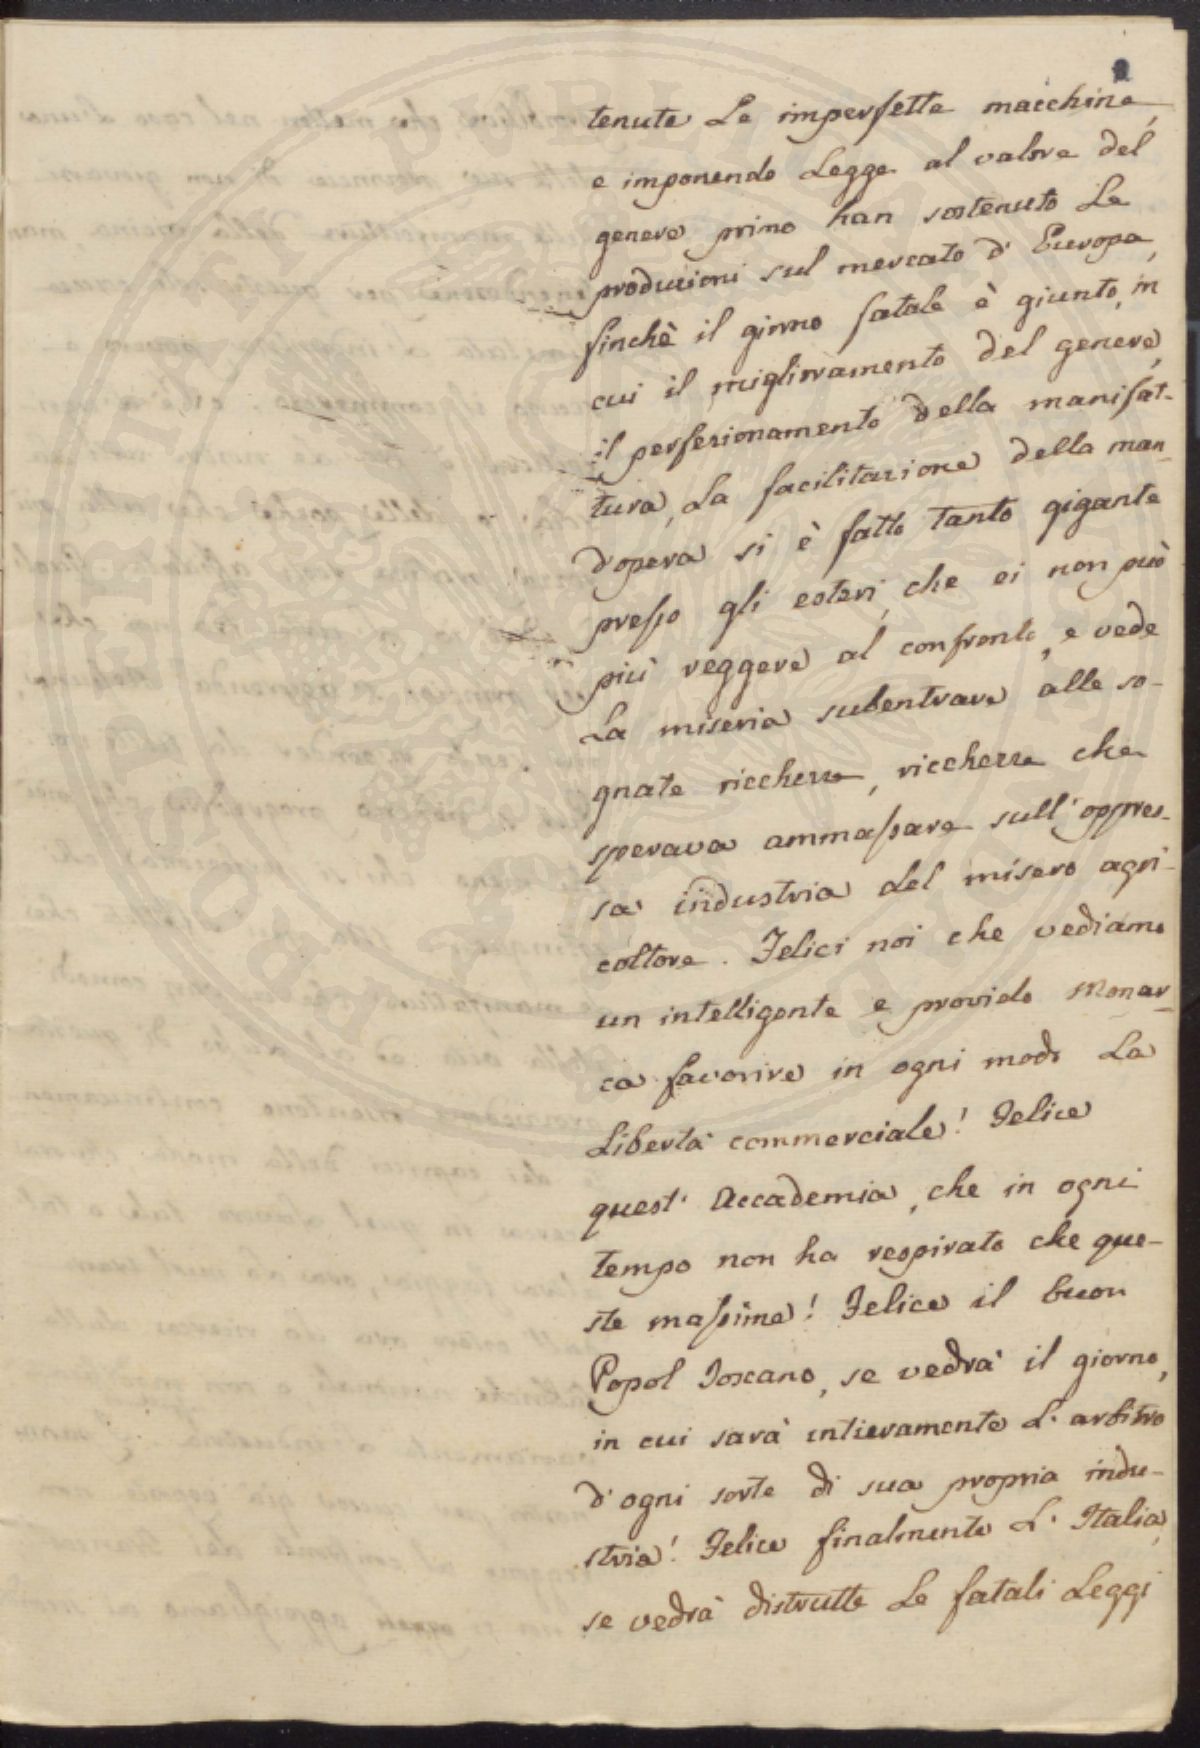 tenute Le imperfette macchine,
e imponendo Legge al valore del
genere primo han sostenuto Le
produzioni sul mercato d'Europa,
finchè il giorno fatale è giunto, in
cui il miglioramento del genere,
il perfezionamento della manifat-
tura, La facilitazione della man
d'opera si è fatto tanto gigante
presso gli esteri, che ei non può
più reggere al confronto, e vede
La miseria subentrare alle so-
gnate ricchezze, ricchezze che
sperava ammassare sull'oppres-
sa industria del misero agri-
coltore. Felici noi che vediamo
un intelligente e provido Monar-
ca favorire in ogni modo La
Libertà commerciale! Felice
quest'Accademia, che in ogni
tempo non ha respirato che que-
ste massime! Felice il buon
Popol Toscano, se vedrà il giorno,
in cui sarà intieramente L'arbitro
d'ogni sorte di sua propria indu-
stria! Felice finalmente L'Italia,
se vedrà distrutte Le fatali Leggi